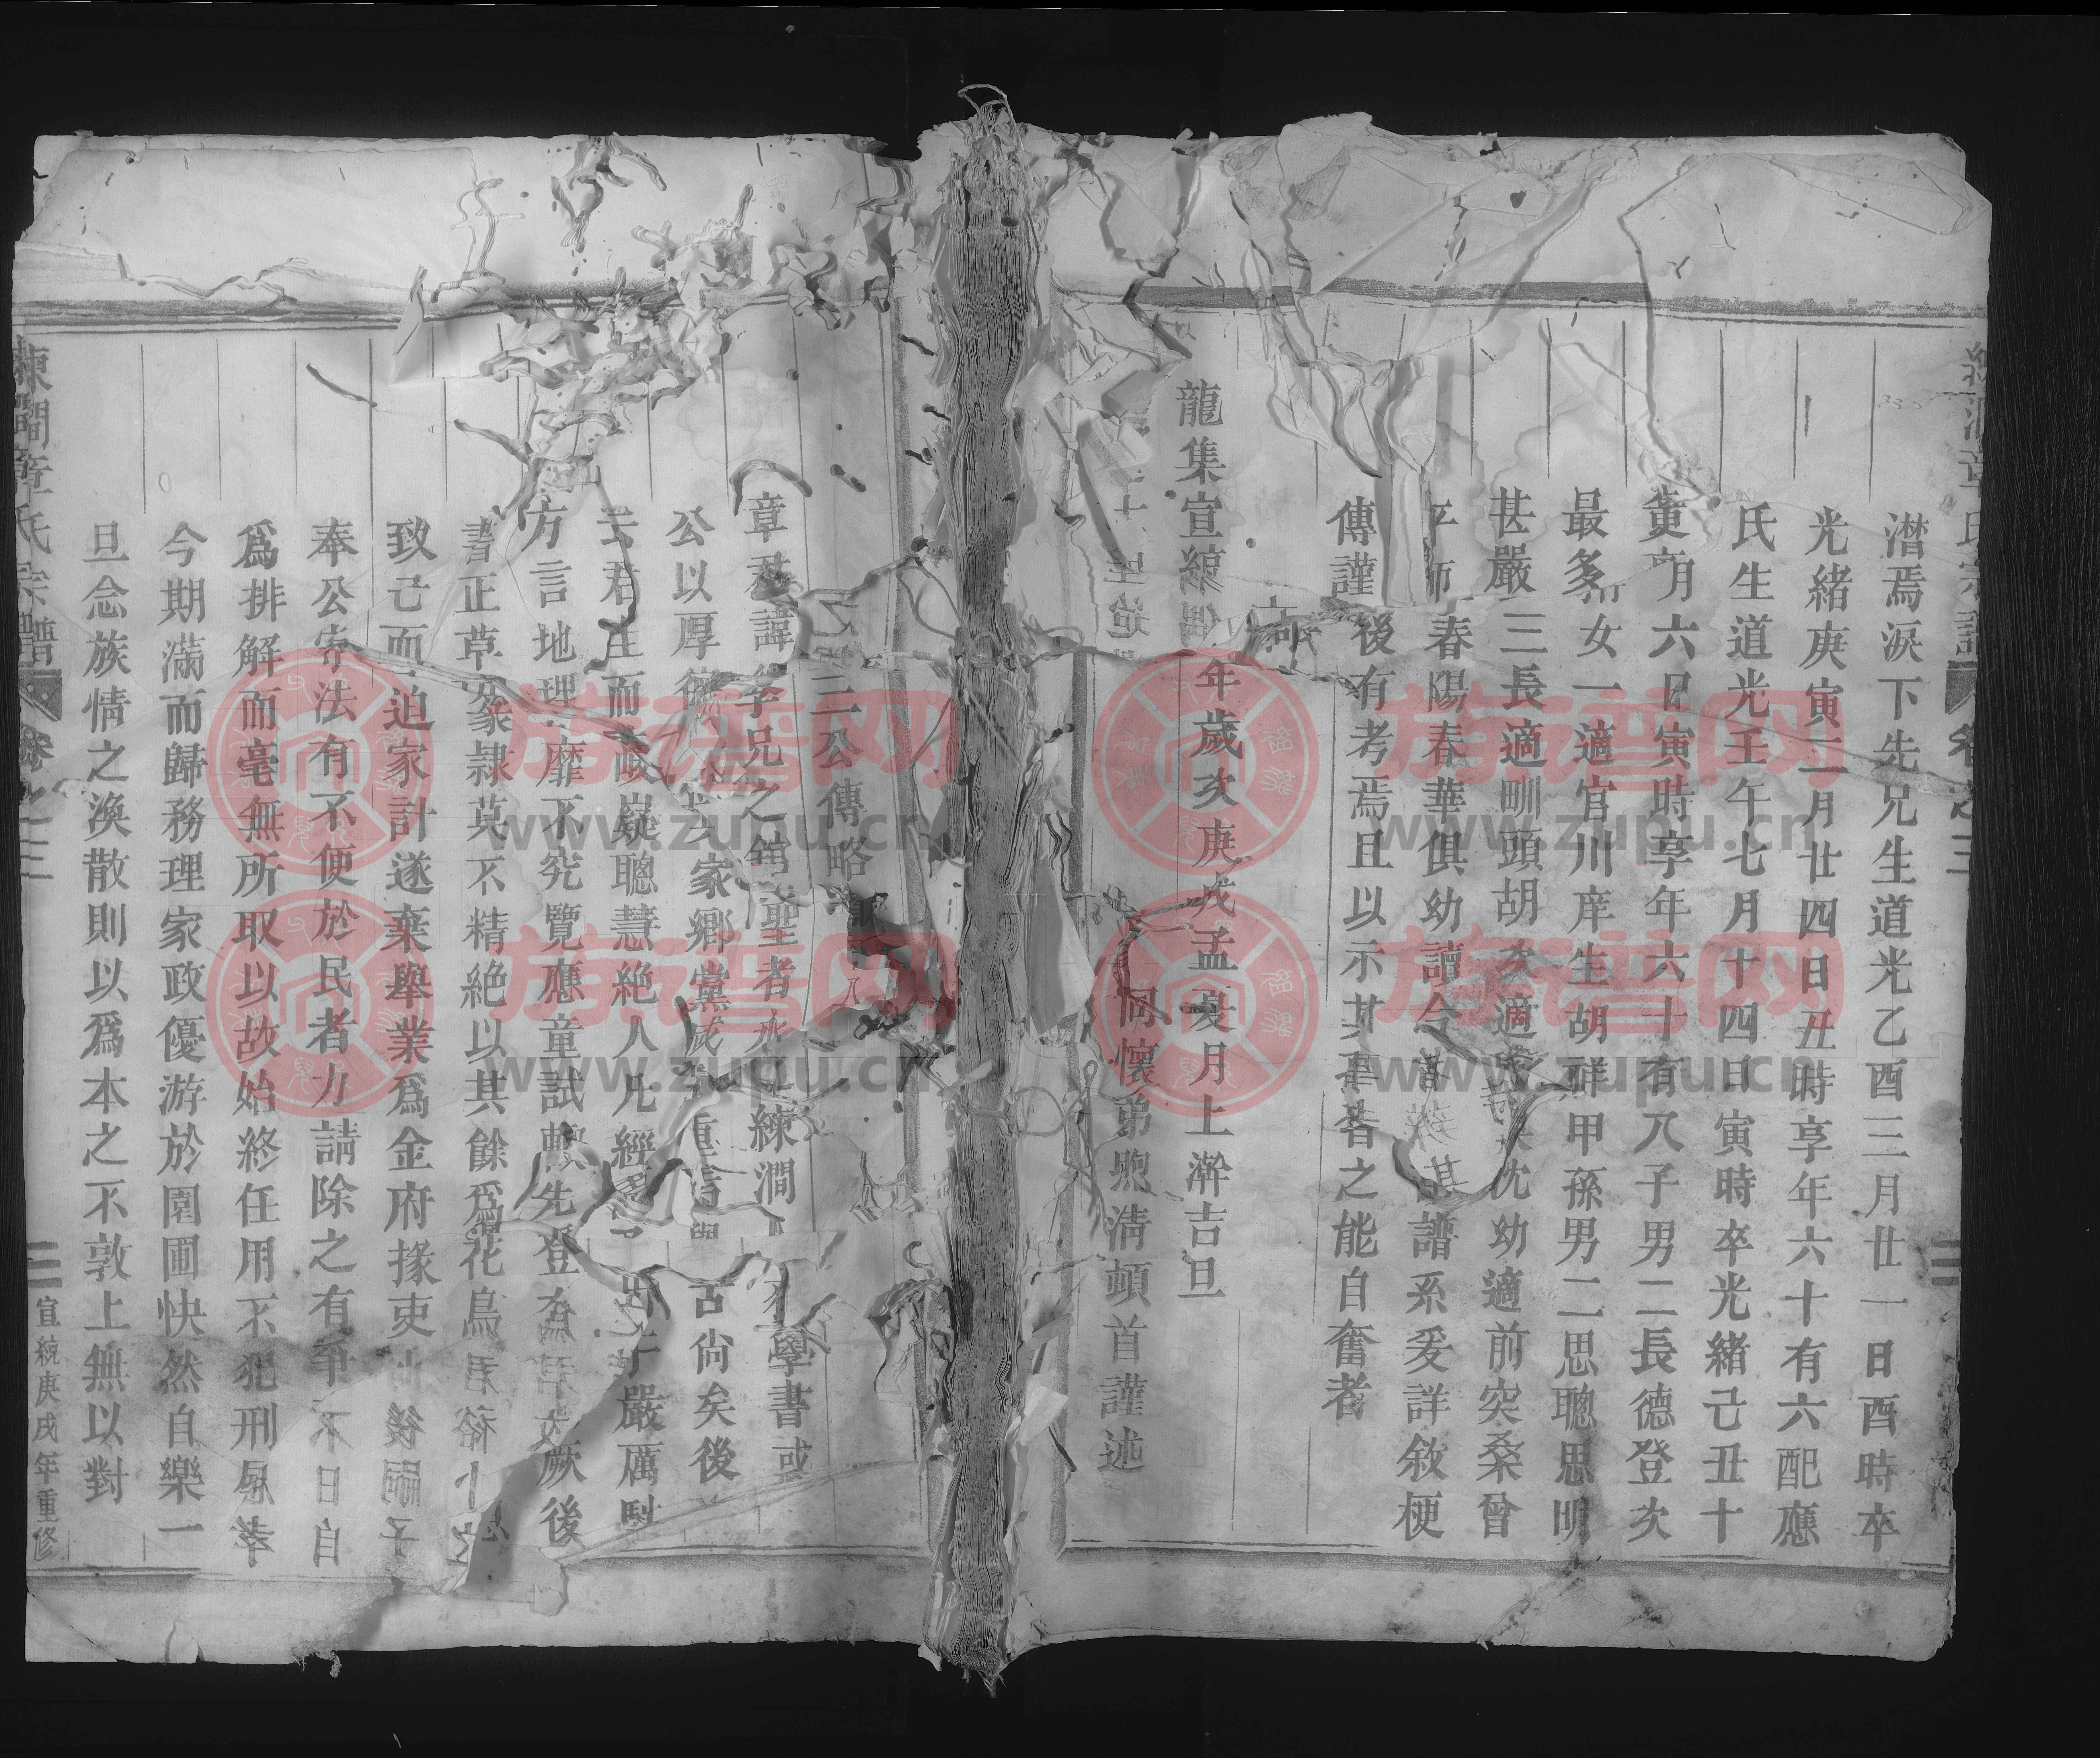 潸焉淚下先兄生道光乙酉三月廿一日酉時卒
光緒庚寅二月廿四日丑時享年六十有六配應
氏生道光壬午七月十四日寅時卒光緒己丑十
月六日寅時享年六十有八子男二長德登次
最多女一適官川庠生胡祥甲孫男二思聰思明
甚嚴三長適 頭胡次適 沈幼適前突桑曾
春陽春華俱幼讀今 譜系爰詳敘梗
傳謹後有考焉且以示其 者之能自奮者
龍集宣 年歲次庚戌孟夏月上澣吉旦
同懷弟煦淸頓首謹述
二公傳略
章君諱 字兄之 聖者 練澗 學書或
公以厚 家鄉黨咸 重 古尙矣後
君生而岐嶷聰慧絕人凡經 嚴厲
方言地理靡不究覽應童試 先登 厥後
書正草篆隸莫不精絕以其餘爲 花鳥君
致己而迫家計遂棄舉業爲金府掾吏 後嗣子
奉公 法有不便於民者力請除之有爭不日自
爲排解而毫無所取以故始終任用不犯刑 辜
今期滿而歸務理家政優游於園圃快然自樂一
旦念族情之渙散則以爲本之不敦上無以對
練澗章氏宗譜 卷之三 二 宣統庚戌年重修
族谱网
www.zupu.cn
族谱网
www.zupu.cn
族谱网
www.zupu.cn
族谱网
www.zupu.cn